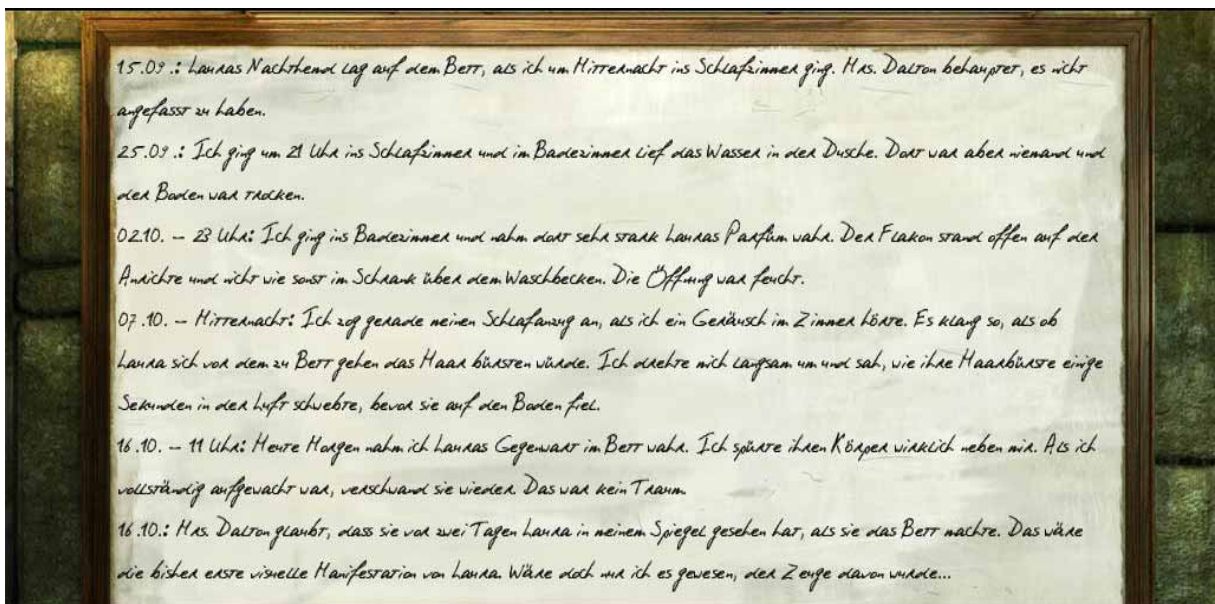 15.09.: Lauras Nachthemd lag auf dem Bett, als ich um Mitternacht ins Schlafzimmer ging. Mrs. Dalton behauptet, es nicht
angefasst zu haben.
25.09.: Ich ging um 21 Uhr ins Schlafzimmer und im Badezimmer lief das Wasser in der Dusche. Dort war aber niemand und
der Boden war trocken.
02.10. – 23 Uhr: Ich ging ins Badezimmer und nahm dort sehr stark Lauras Parfüm wahr. Der Flakon stand offen auf der
Anrichte und nicht wie sonst im Schrank über dem Waschbecken. Die Öffnung war feucht.
07.10. – Mitternacht: Ich zog gerade meinen Schlafanzug an, als ich ein Geräusch im Zimmer hörte. Es klang so, als ob
Laura sich vor dem zu Bett gehen das Haar bürsten würde. Ich drehte mich langsam um und sah, wie ihre Haarbürste einige
Sekunden in der Luft schwebte, bevor sie auf den Boden fiel.
16.10. – 11 Uhr: Heute Morgen nahm ich Lauras Gegenwart im Bett wahr. Ich spürte ihren Körper wirklich neben mir. Als ich
vollständig aufgewacht war, verschwand sie wieder. Das war kein Traum.
16.10.: Mrs. Dalton glaubt, dass sie vor zwei Tagen Laura in meinem Spiegel gesehen hat, als sie das Bett machte. Das wäre
die bisher erste visuelle Manifestation von Laura. Wäre doch nur ich es gewesen, der Zeuge davon wurde...